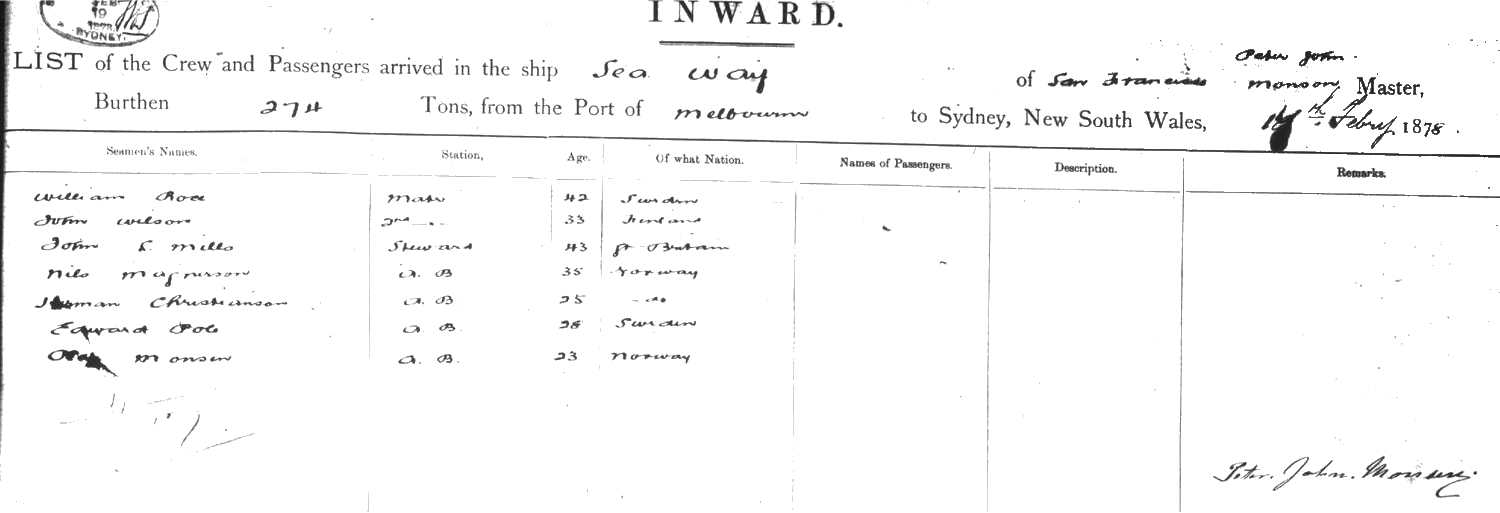 FEB
19
1878
SYDNEY.
INWARD.
LIST of the Crew and Passengers arrived in the ship Sea way of San Francisco Peter John monson, Master,
Burthen 274 Tons, from the Port of melbourne to Sydney, New South Wales, th Febry 1878.
Seamen's Names. Station, Age. Of what Nation. Names of Passengers. Description. Remarks.
william Rose mate 42 Sweden
John wilson 2nd 33 Finland
John S. mills Steward 43 gt Britain
Nils magnusson a. B 35 Norway
Christianson a. B 25 - do
Edward a B. 28 Sweden
monsen a. B. 23 norway
Peter. John. Monsen.